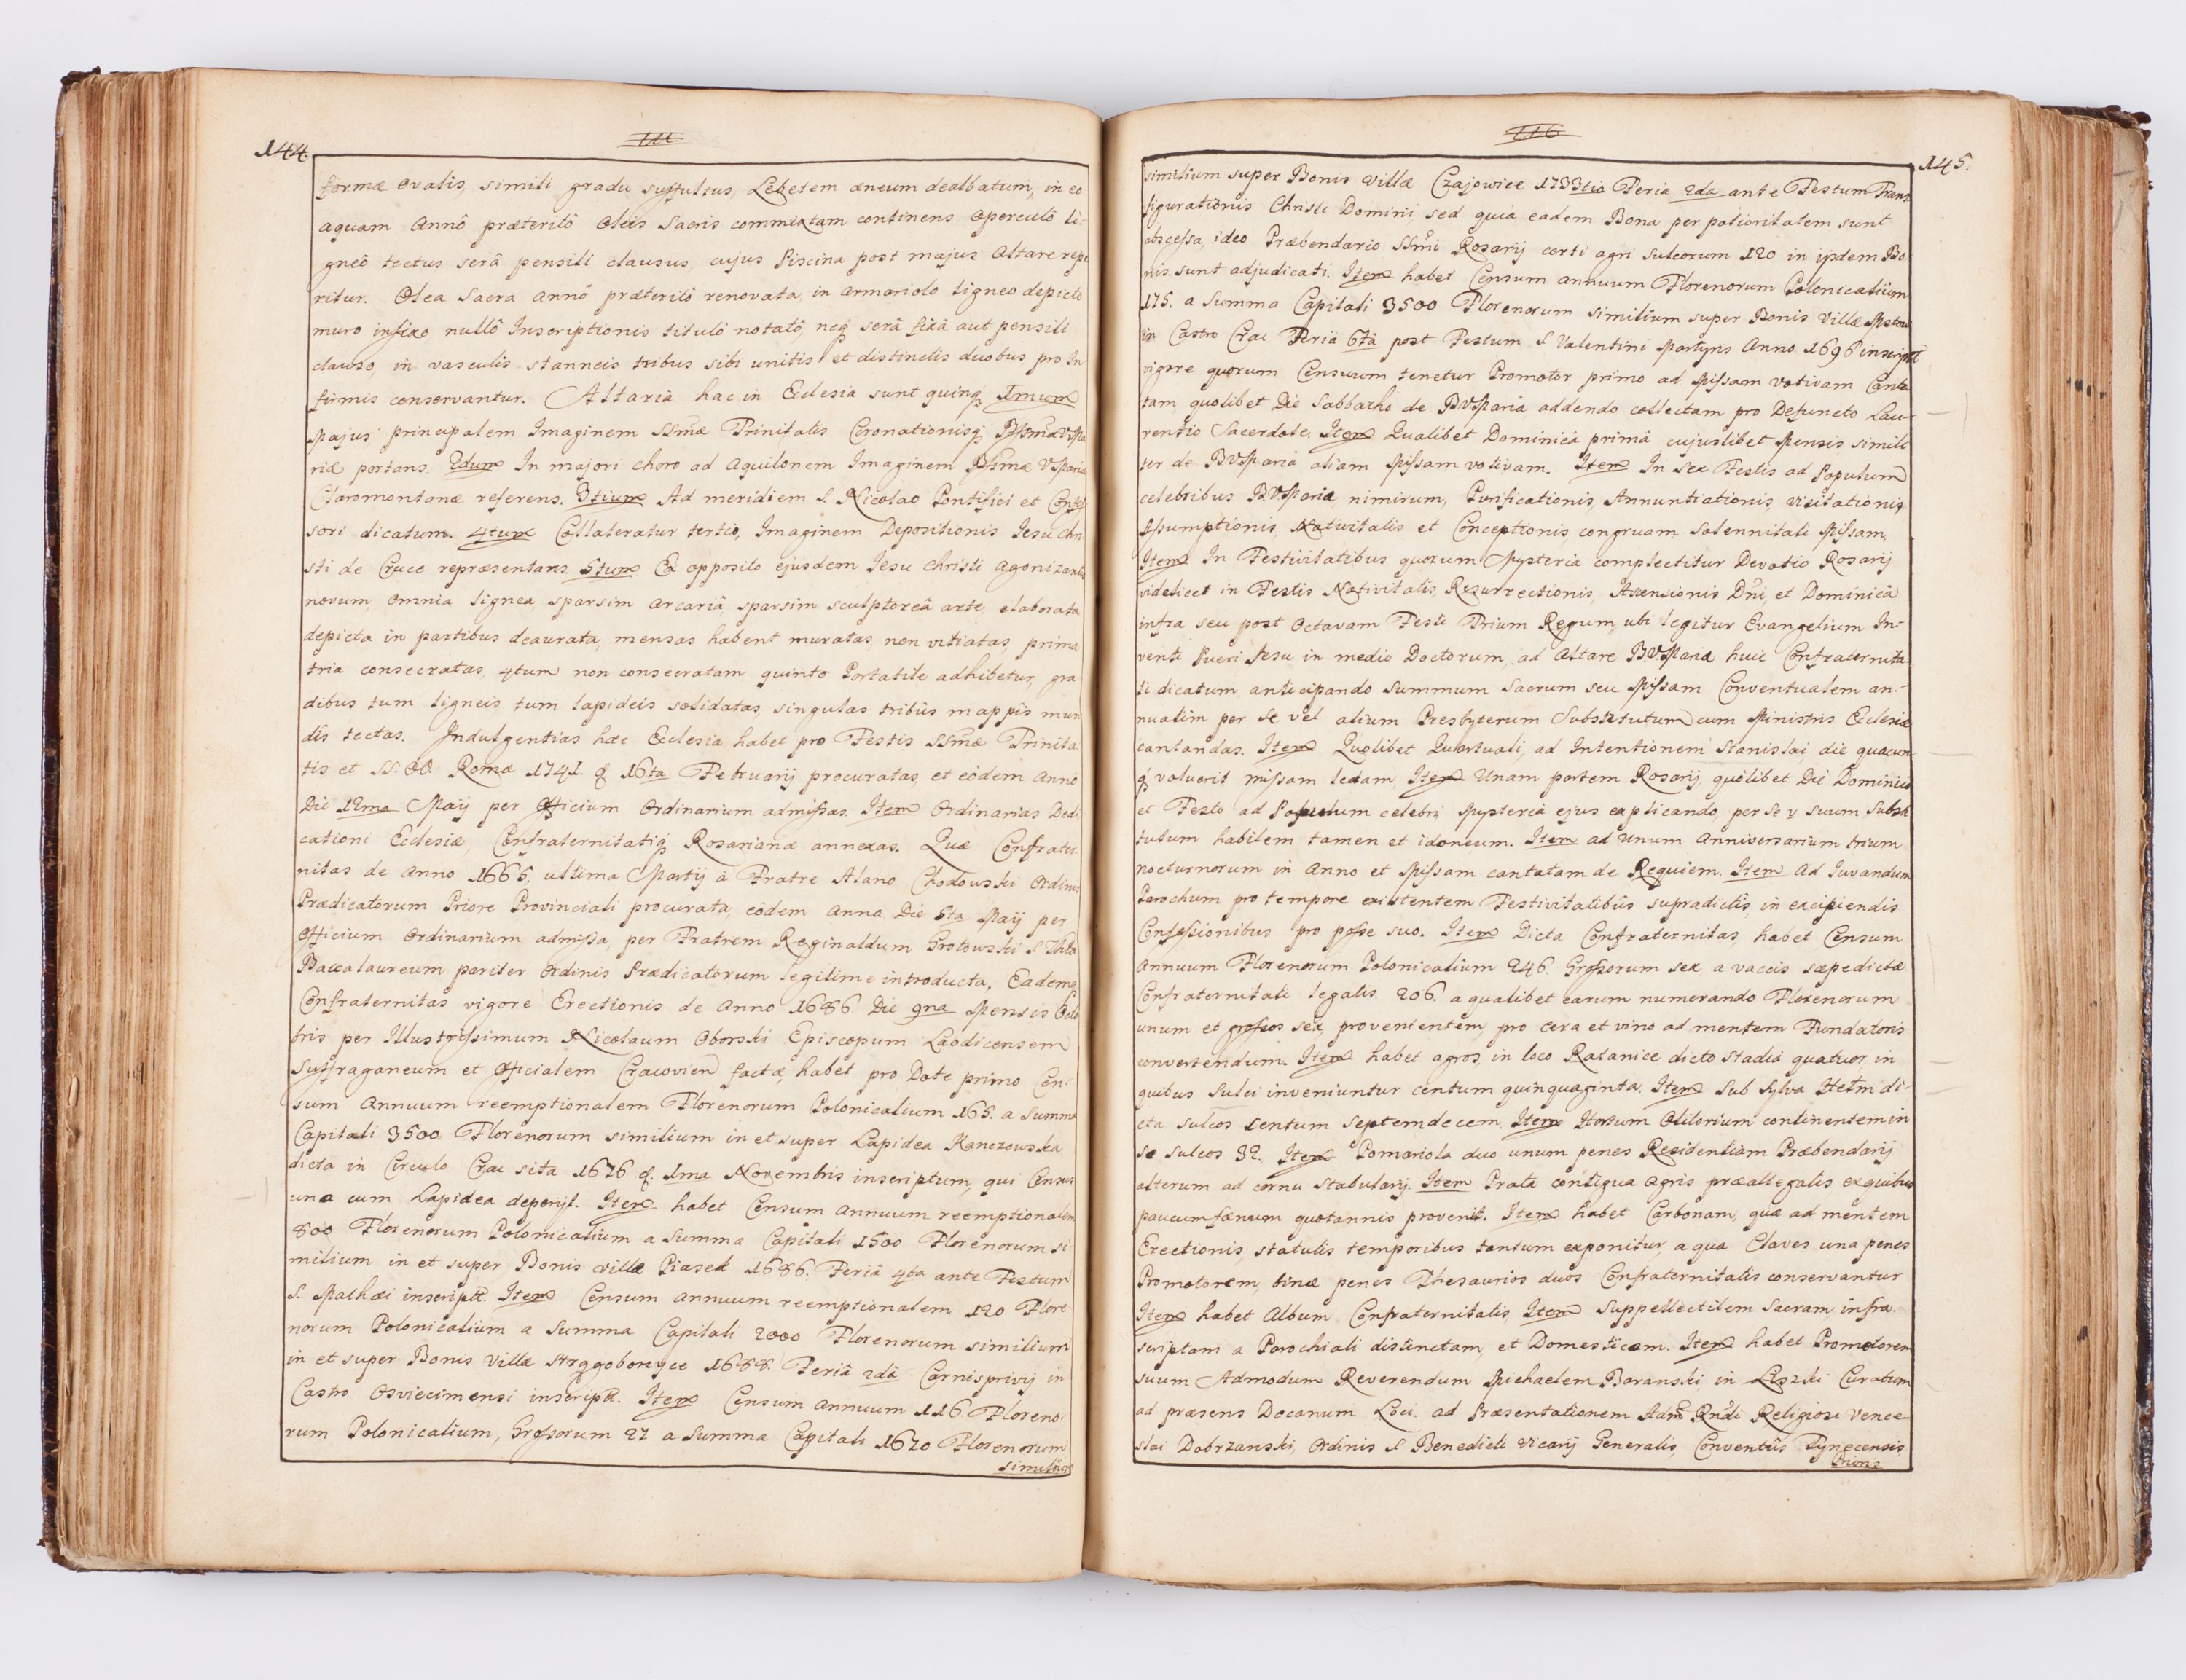 144.
formæ ovalis, simili gradu suffultus, Lebetem æneum dealbatum, in eo
aquam Annô præteritô Oleis Sacris commixtam continens Operculô li-
gneô tectus serâ pensili clausus, cujus Piscina post majus Altare repe
ritur. Olea Sacra Annô præteritô renovata, in armariolo ligneo depicto
muro infixo nullô Inscriptionis titulô notatô neq serâ fixâ aut pensili
clauso, in vasculis stanneis tribus sibi unitis et distinctis duobus pro In
firmis conservantur. Altaria hac in Ecclesia sunt quinq Imum
Majus principalem Imaginem SSmæ Trinitatis Coronationisq BSsmæ VMa
riæ portans. 2dum In majori choro ad Aquilonem Imaginem BSsmæ VMariæ
Claromontanæ referens. 3tium Ad meridiem S. Nicolao Pontifici et Confes
sori dicatum. 4tum Collateratur tertio, Imaginem Depositionis Iesu Chri
sti de Cruce repræsentans. 5tum Ex opposito ejusdem Iesu Christi Agonizantis
novum, Omnia lignea, sparsim arcariâ, sparsim sculptoreâ arte elaborata
depicta in partibus deaurata, mensas habent muratas, non vitiatas, prima
tria consecratas, 4tum non consecratam, quinto Portatile adhibetur, gra
dibus tum ligneis tum lapideis solidatas, singulas tribûs mappis mun
dis tectas. Indulgentias hæc Ecclesia habet pro Festis SSmæ Trinita
tis et SS: OO. Romæ 1741 8 16ta Februarij procuratas, et eôdem Annô
Die 12ma Maij per Officium Ordinarium admissas. Item Ordinarias Dedi
cationi Ecclesiæ, Confraternitatiq Rosarianæ annexas. Quæ Confrater
nitas de Anno 1665. ultima Martij à Fratre Alano Chodowski Ordinis
Prædicatorum Priore Provinciali procurata, eôdem Anno Die 5ta Maij per
Officium Ordinarium admissa, per Fratrem Reginaldum Grotowski S. Thlo
Baccalaureum pariter Ordinis Prædicatorum legitime introducta. Eadem
Confraternitas vigore Erectionis de Anno 1686. Die 9na Mensis Octo
bris per Illustrissimum Nicolaum Oborski Episcopum Laodicensem
Suffraganeum et Officialem Cracovien factæ, habet pro Dote primo Cen-
sum Annuum reemptionalem Florenorum Polonicalium 165. a Summa
Capitali 3500 Florenorum similium in et super Lapidea Kanczowska
dicta in Circulo Crac sita 1676 8. 1ma Novembris inscriptum, qui Census
una cum Lapidea deperyt. Item habet Censum Annuum reemptionalem
800 Florenorum Polonicalium a Summa Capitali 1500 Florenorum si
milium in et super Bonis villæ Piasek 1686. Feriâ 4ta ante Festum
S. Mathæi inscript. Item Censum annuum reemptionalem 120 Flore
norum Polonicalium a Summa Capitali 2000 Florenorum similium
in et super Bonis Villæ Strygoborzyce 1688. Feriâ 2dâ Carnisprivij in
Castro Osviecimensi inscript. Item Censum Annuum 116. Floreno-
rum Polonicalium, Grossorum 27 a Summa Capitali 1670 Florenorum
similium
145.
similium super Bonis Villæ Czajowice 1733tio Feria 2da ante Festum Trans
figurationis Christi Domini sed quia eadem Bona per potioritatem sunt
abscessa, ideo Præbendario SSmi Rosarij certi agri sulcorum 120 in ijsdem Bo
nis sunt adjudicati. Item habet Censum annuum Florenorum Polonicalium
175. a Summa Capitali 3500 Florenorum similium super Bonis Villæ
in Castro Crac Feriâ 6tâ post Festum S. Valentini Martyris Anno 1696 inscript
vigore quorum Censuum tenetur Promotor primo ad Missam votivam Canta
tam quolibet Die Sabbatho de BVMaria addendo collectam pro Defuncto Lau-
rentio Sacerdote. Item Qualibet Dominicâ primâ cujuslibet Mensis simili
ter de BVMariâ aliam Missam votivam. Item In Sex Festis ad Populum
celebribus BVMariæ nimirum, Purificationis, Annuntiationis, Visitationis,
Assumptionis, Nativitatis et Conceptionis congruam Solennitati Missam,
Item In Festivitatibus quorum Mysteria complectitur Devotio Rosarij
videlicet in Festis Nativitatis, Resurrectionis, Ascensionis Dni, et Dominicâ
infra seu post Octavam Festi Trium Regum, ubi legitur Evangelium In-
venti Pueri Jesu in medio Doctorum, ad Altare BVMariæ huic Confraternita-
ti dicatum anticipando Summum Sacrum seu Missam Conventualem an-
nuatim per se vel alium Presbyterum Substitutum cum Ministris Ecclesiæ
cantandas. Item Quolibet Quartuali, ad Intentionem Stanislai, die quacun
q voluerit missam lectam, Item Unam partem Rosarij, quôlibet Die Dominico
et Festo ad Populum celebri Mysteria ejus explicando, per se v suum Substi
tutum habilem tamen et idoneum. Item ad Unum Anniversarium trium
nocturnorum in Anno et Missam cantatam de Requiem. Item Ad Iuvandum
Parochum pro tempore existentem Festivitatibûs supradictis in excipiendis
Confessionibus pro posse suo. Item Dicta Confraternitas habet Censum
Annuum Florenorum Polonicalium 246. Grossorum sex a vaccis sæpedictæ
Confraternitati legatis 206. a qualibet earum numerando Florenorum
unum et grossos sex, provenientem, pro cera et vino ad mentem Fundatoris
convertendum. Item habet agros, in loco Ratanice dicto Stadia quatuor, in
quibus Sulci inveniuntur centum quinquaginta. Item Sub Sylva di-
cta sulcos centum septemdecem. Item Hortum Olitorium continentem in
se sulcos 32. Item Pomariola duo unum penes Residentiam Præbendarij
alterum ad cornu stabularij. Item Prata contigua agris præallegatis exquibus
paucum fænum quotannis provenit. Item habet Carbonam, quæ ad mentem
Erectionis, statutis temporibus tantum exponitur, a qua Claves una penes
Promotorem, binæ penes Thesaurios duos Confraternitatis conservantur
Item habet Album Confraternitatis, Item Suppellectilem Sacram infra
scriptam a Parochiali distinctam, et Domesticam. Item habet Promotorem
suum Admodum Reverendum Michaelem Baranski in Liszki Curatum
ad præsens Decanum Loci. ad Præsentationem Adm Rndi Religiosi Vence-
slai Dobrzanski, Ordinis S. Benedicti Vicarij Generalis, Conventûs Tynecensis